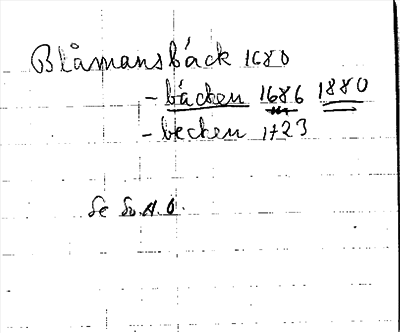 Blåmansbäck 1680
- bäcken 1686 1880
- becken 1723
Se Sv.A.O.